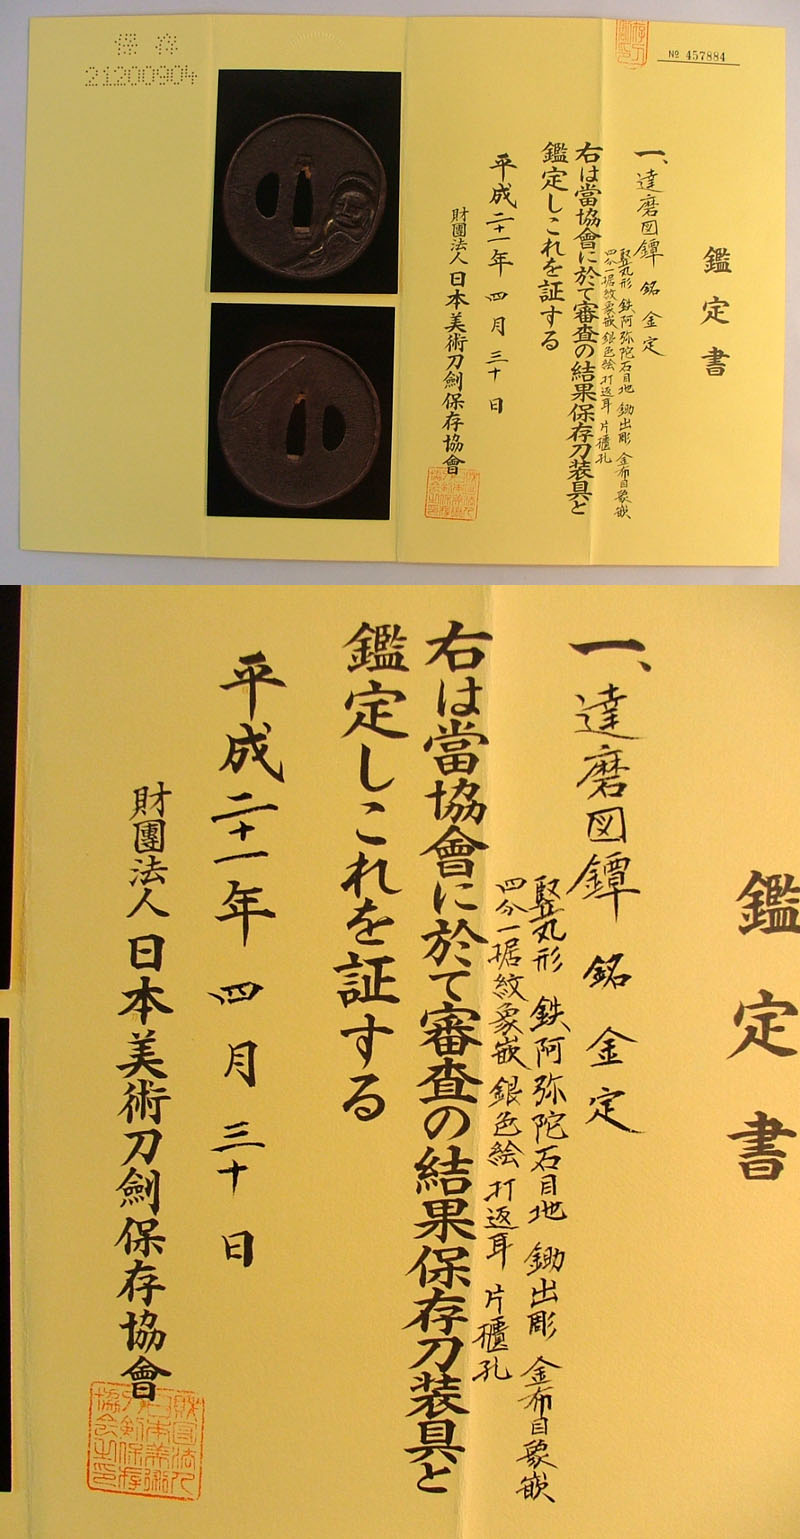 保存
21200904
№ 457884
鑑定書
一、達磨図鐔 銘 金定
竪丸形 鉄阿弥陀石目地 鋤出彫 金布目象嵌
四分一据紋象嵌 銀色絵 打返耳 片櫃孔
右は當協會に於て審査の結果保存刀装具と
鑑定しこれを証する
平成二十一年 四月 三十日
財團法人 日本美術刀劍保存協會
鑑定書
一、達磨図鐔 銘 金定
竪丸形 鉄阿弥陀石目地 鋤出彫 金布目象嵌
四分一据紋象嵌 銀色絵 打返耳 片櫃孔
右は當協會に於て審査の結果保存刀装具と
鑑定しこれを証する
平成二十一年 四月 三十日
財團法人 日本美術刀劍保存協會